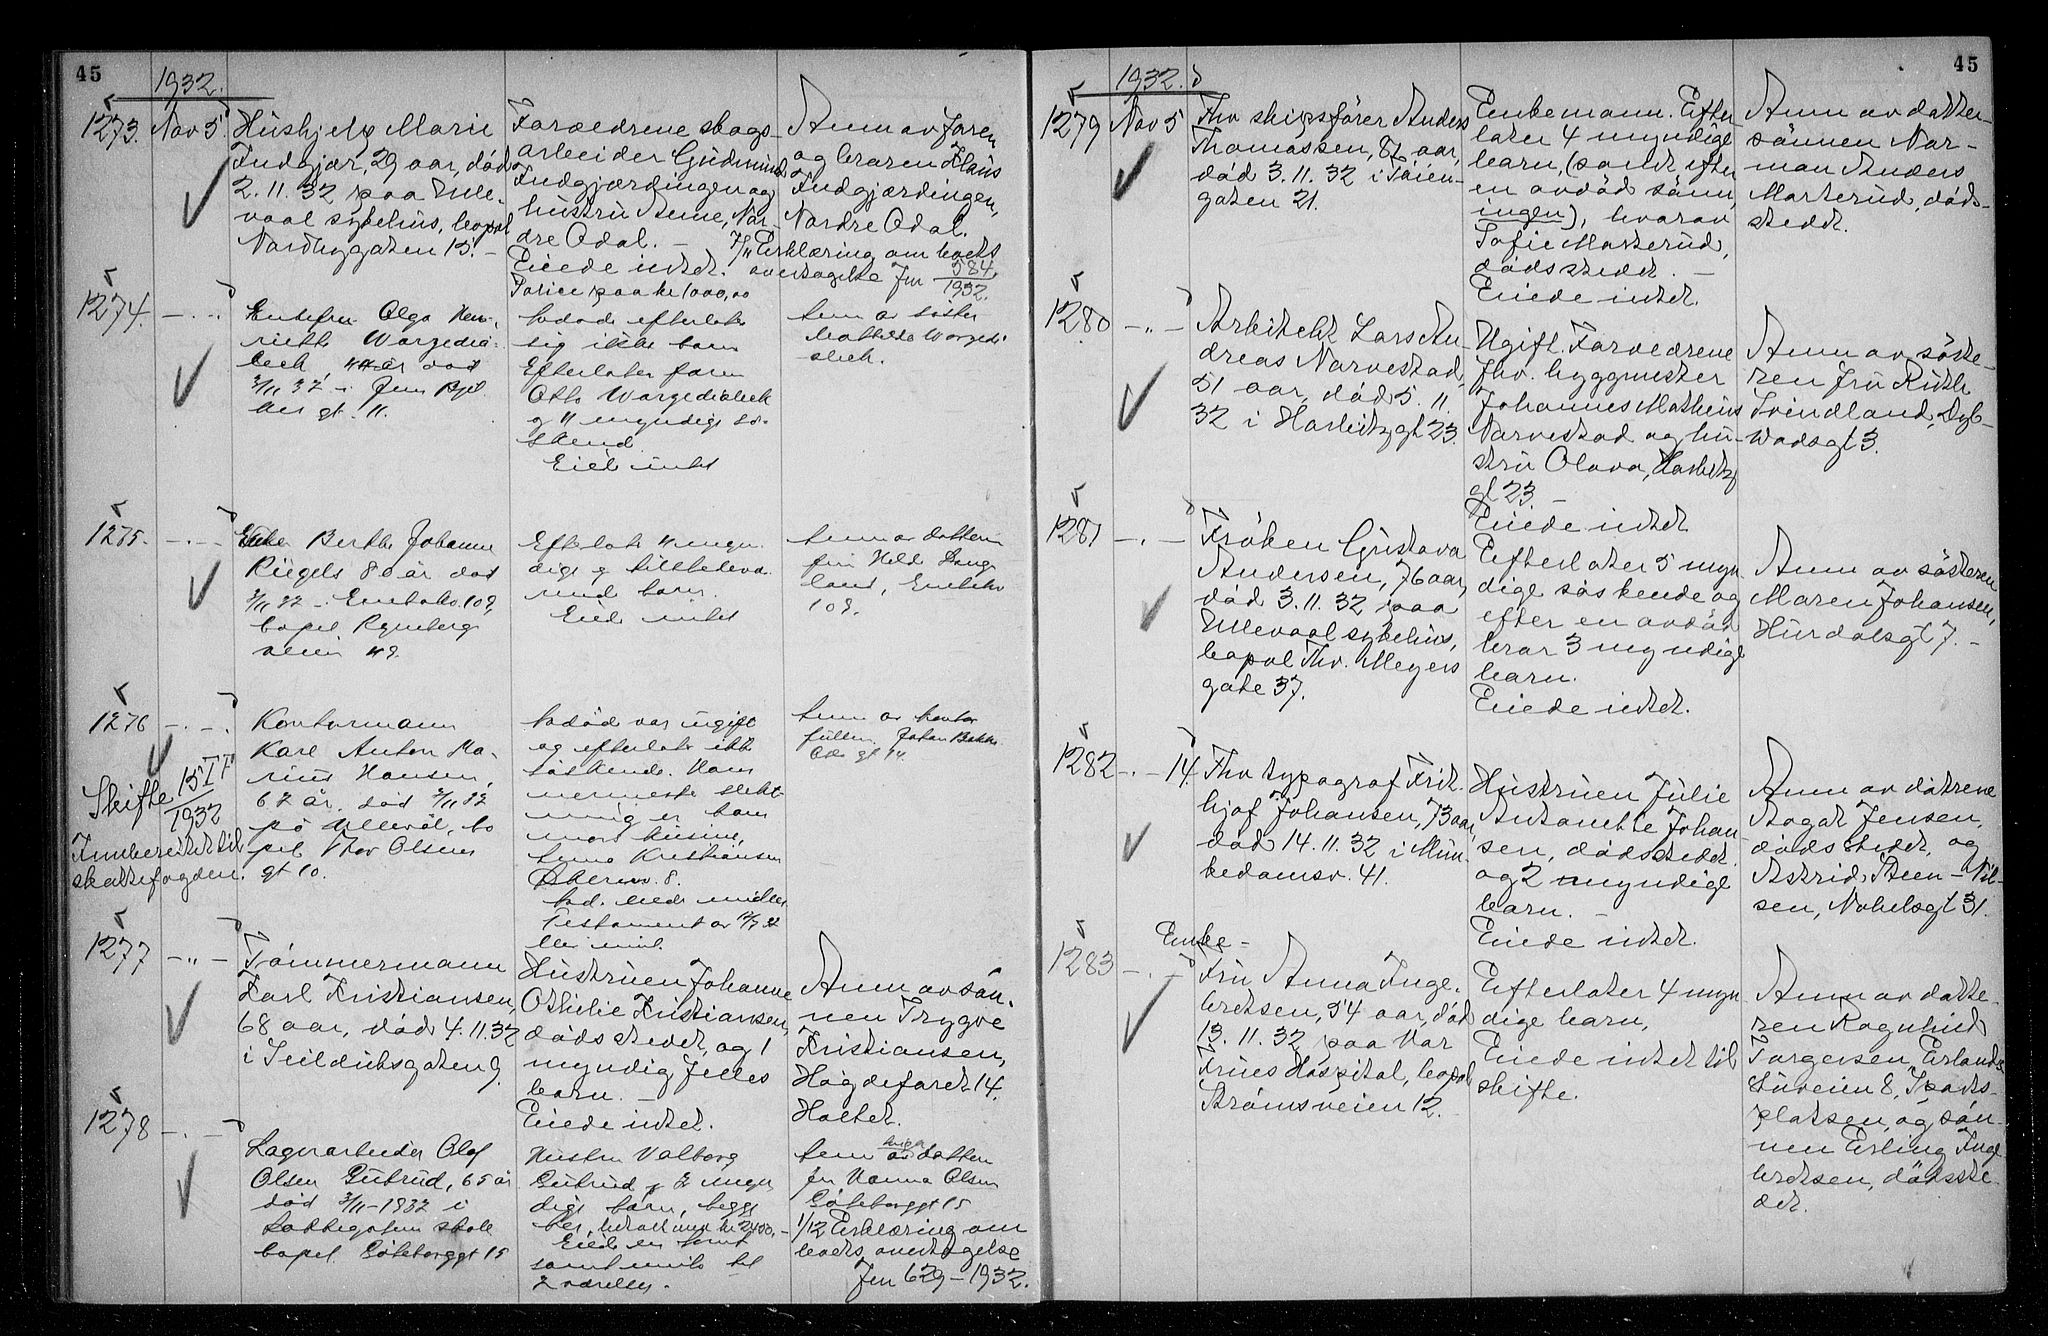 45
1932.
1273. Nov 5.
Hushjelp Marie
Indgjær, 29 aar, död
2.11.32 paa Ulle-
vaal sykehus, bopel
Nordbygaten 15. -
Forældrene skogs-
arbeider Gudmund
Indgjærdingen og
hustru Anne, Nor-
dre Odal. -
Eiede intet.
paa kr 1000,00
Anm av faren
og broren Klaus
Indgjærdingen,
Nordre Odal.
7/11 Erklæring om boets
overtagelse Jnr 584
1932.
1274. - " -
Enkefru Olga Hen-
riette Wargedia-
beck, år död
3/11 32 i Jens Bjel-
kes gt. 11.
Avdöde efterlater
sig ikke barn
Efterlater faren
Otto
og 4 myndige sö-
skend
Eide intet
Anm av söster
Mathilde
1275. - " -
Enke Berthe Johanne
Riegels 80 år död
3/11 32 - 109,
bopel Ryenbergs
veien 49.
Efterlater 4 myn-
dige og tilstedevæ-
rend barn.
Eide intet
Anm av datteren
fru
land,
109.
1276 - " -
Skifte 15 IF
1932
Innberettet til
skattefogden.
Kontormann
Karl Anton Ma-
rius Hansen,
62 år. död 3/11 32
på Ullevål, bo-
pel Thor Olsens
gt 10.
Avdöde var ugift
og efterlater ikke
söskende. Hans
nermeste slekt-
ning er hans
mors kusine,
Anna Kristiansen
8.
Testament av
Anm av kontor
fullm. Johan Bakke
gt 14.
1277 - " -
Tömmermann
Karl Kristiansen,
68 aar, död 4.11.32
i Seilduksgaten 9.
Hustruen Johanne
Othilie Kristiansen,
dödsstedet, og 1
myndig felles
barn. -
Eiede intet.
Anm av søn-
nen Trygve
Kristiansen,
Høgdefaret 14.
Holtet.
1278 - " -
Lagerarbeider Olaf
Olsen Gutrud, 65 år
död 3/11-1932 i
Lakkegatens skole
bopel Göteborggt 15
Hustru Valborg
Gutrud og 2 myn-
dige barn, begge
kr 2400,-
samt innbo til
2 værelser.
Anm av datteren
frk Nanna Olsen
Göteborggt 15
1/12 Erklæring om
boets overtagelse
Jnr 629 - 1932.
45
1932.
1279 Nov 5
Fhv skipsförer Anders
Thomassen, 82 aar,
död 3.11.32 i Töien-
gaten 21.
Enkemann. Efter-
later 4 myndige
barn, (samt efter
en avdöd sönn
ingen), hvorav
Sofie Marterud,
dödsstedet. -
Eiede intet.
Anm av datter-
sönnen Nor-
man Anders
Marterud, döds-
stedet.
1280 - " -
Arkitekt Lars An-
dreas Narvestad,
51 aar, död 5.11.
32 i Harbitzgt 23.
Ugift. Forældrene
fhv. byggmester
Johannes Mathias
Narvestad og hu-
stru Olava, Harbitz
gt 23 -
Eiede intet
Anm av söste-
ren fru Ruth
Svindland, Dyb-
wadsgt 3.
1281 - " -
Fröken Gustava
Andersen, 76 aar,
död 3.11.32 paa
Ullevaal sykehus,
bopel Thv. Meyers
gate 37.
Efterlater 5 myn-
dige söskende og
efter en avdöd
bror 3 myndige
barn.
Eiede intet.
Anm av sösteren
Maren Johansen,
Hurdalsgt 7. -
1282 - " - 14.
Fhv typograf Frit-
hjof Johansen, 73 aar,
död 14.11.32 i Mun-
kedamsv. 41.
Hustruen Julie
Antonette Johan-
sen, dödsstedet
og 2 myndige
barn. -
Eiede intet.
Anm av døtrene
Aagot Jensen,
dödsstedet, og
Astrid Steen-Nil-
sen, Nobelsgt 31.
1283 - " -
Enke-
Fru Anna Inge-
bretsen, 54 aar, död
13.11.32 paa Vor
Frues Hospital, bopel
Strömsveien 12.
Efterlater 4 myn-
dige barn.
Eiede intet til
skifte.
Anm av datte-
ren Ragnhild
Torgersen, Erlands-
tuveien 8, Sports-
platsen, og søn-
nen Erling Inge-
bretsen, dödsste-
det.